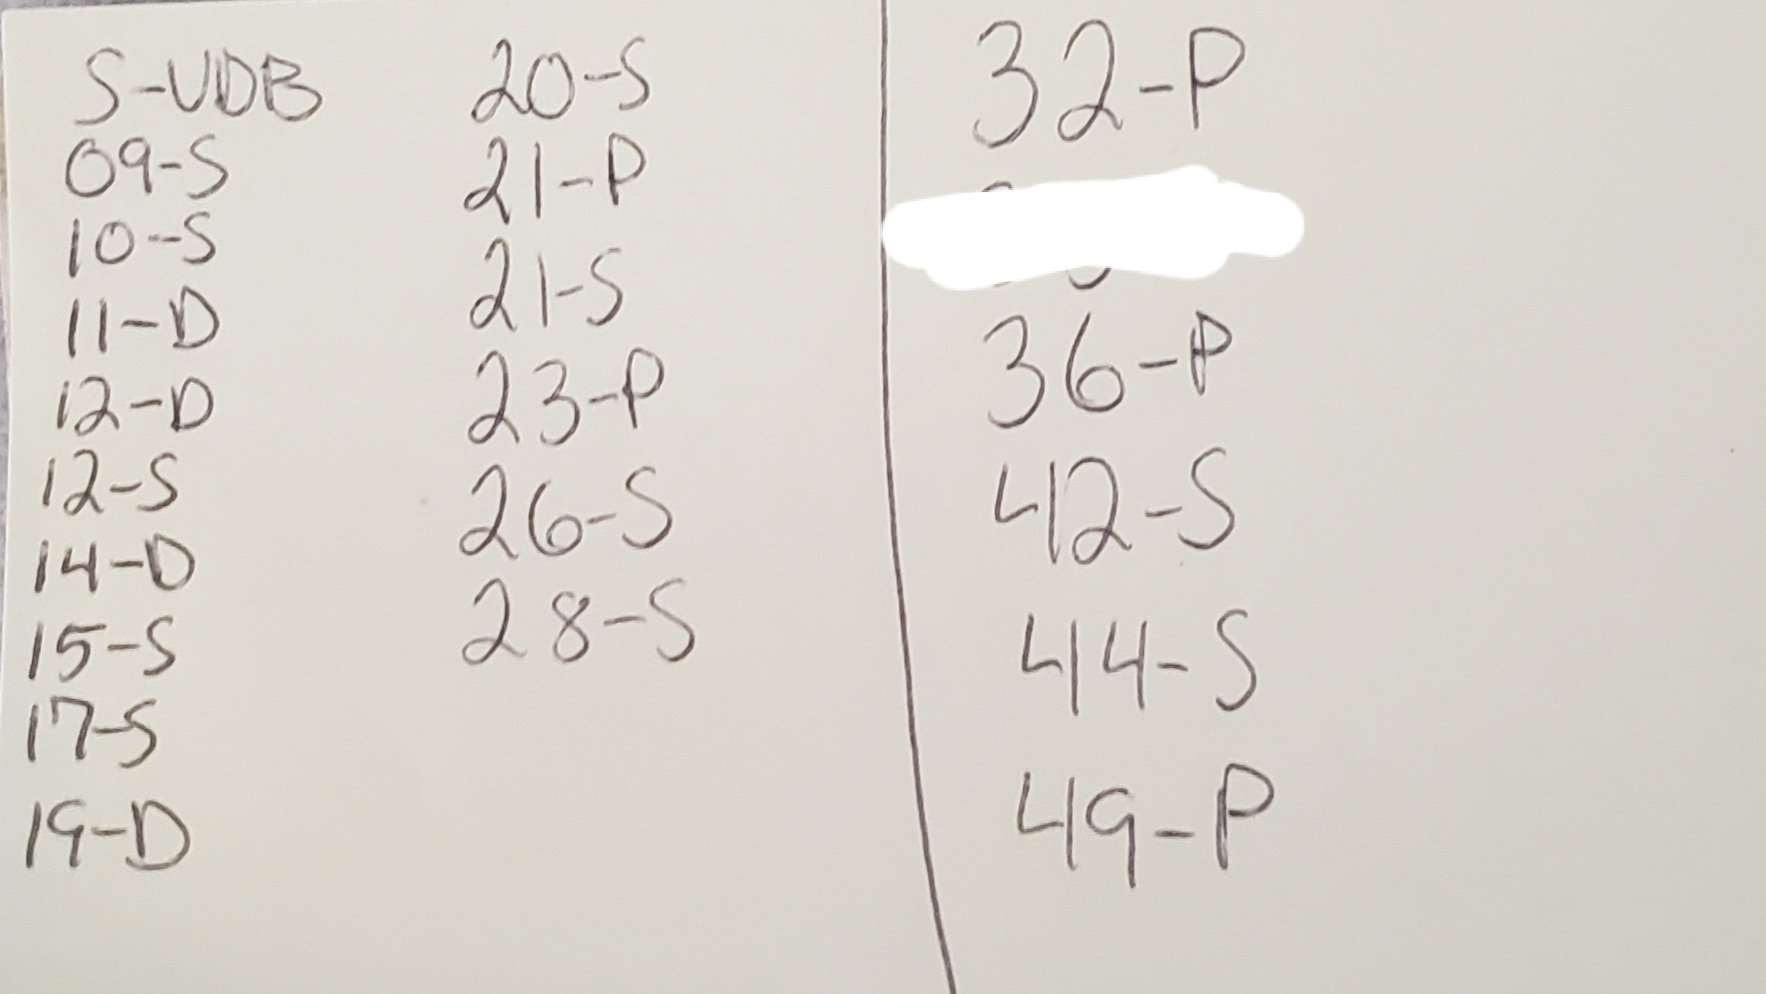 S-VDB
09-S
10-S
11-D
12-D
12-S
14-D
15-S
17-S
19-D
20-S
21-P
21-S
23-P
26-S
28-S
32-P
36-P
42-S
44-S
49-P